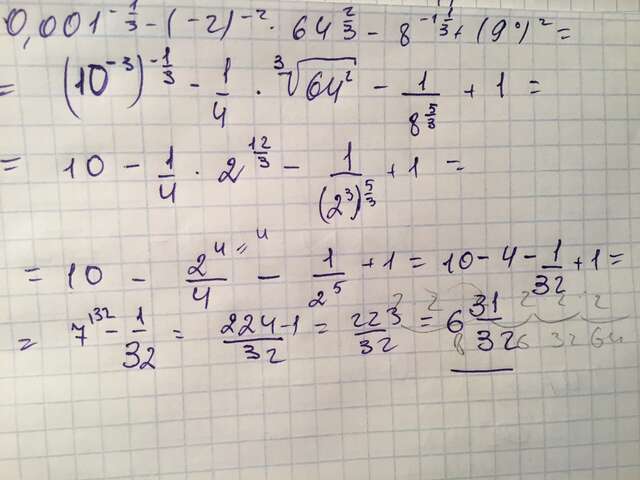 0,001^{-\frac{1}{3}} - (-2)^{-2} \cdot 64^{\frac{2}{3}} - 8^{-1\frac{1}{3}} + (9^0)^2 =
= (10^{-3})^{-\frac{1}{3}} - \frac{1}{4} \cdot \sqrt[3]{64^2} - \frac{1}{8^{\frac{5}{3}}} + 1 =
= 10 - \frac{1}{4} \cdot 2^{\frac{12}{3}} - \frac{1}{(2^3)^{\frac{5}{3}}} + 1 =
= 10 - \frac{2^4}{4} - \frac{1}{2^5} + 1 = 10 - 4 - \frac{1}{32} + 1 =
= 7^{132} - \frac{1}{32} = \frac{224-1}{32} = \frac{223}{32} = 6\frac{31}{32}